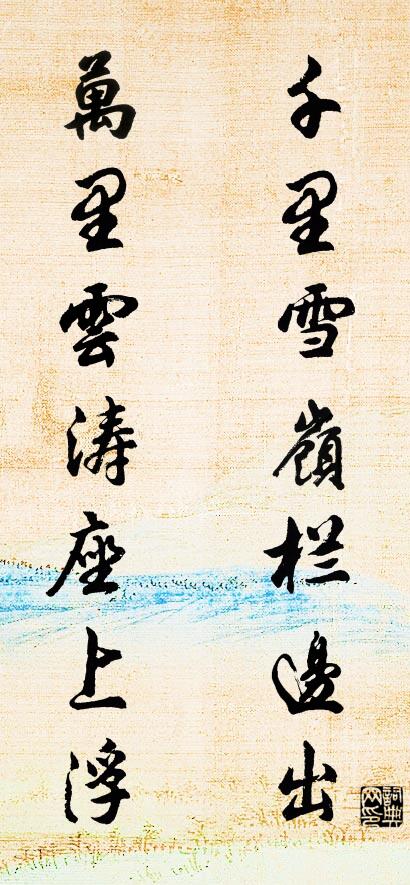 千里雪嶺栏邊出
萬里雲涛座上浮